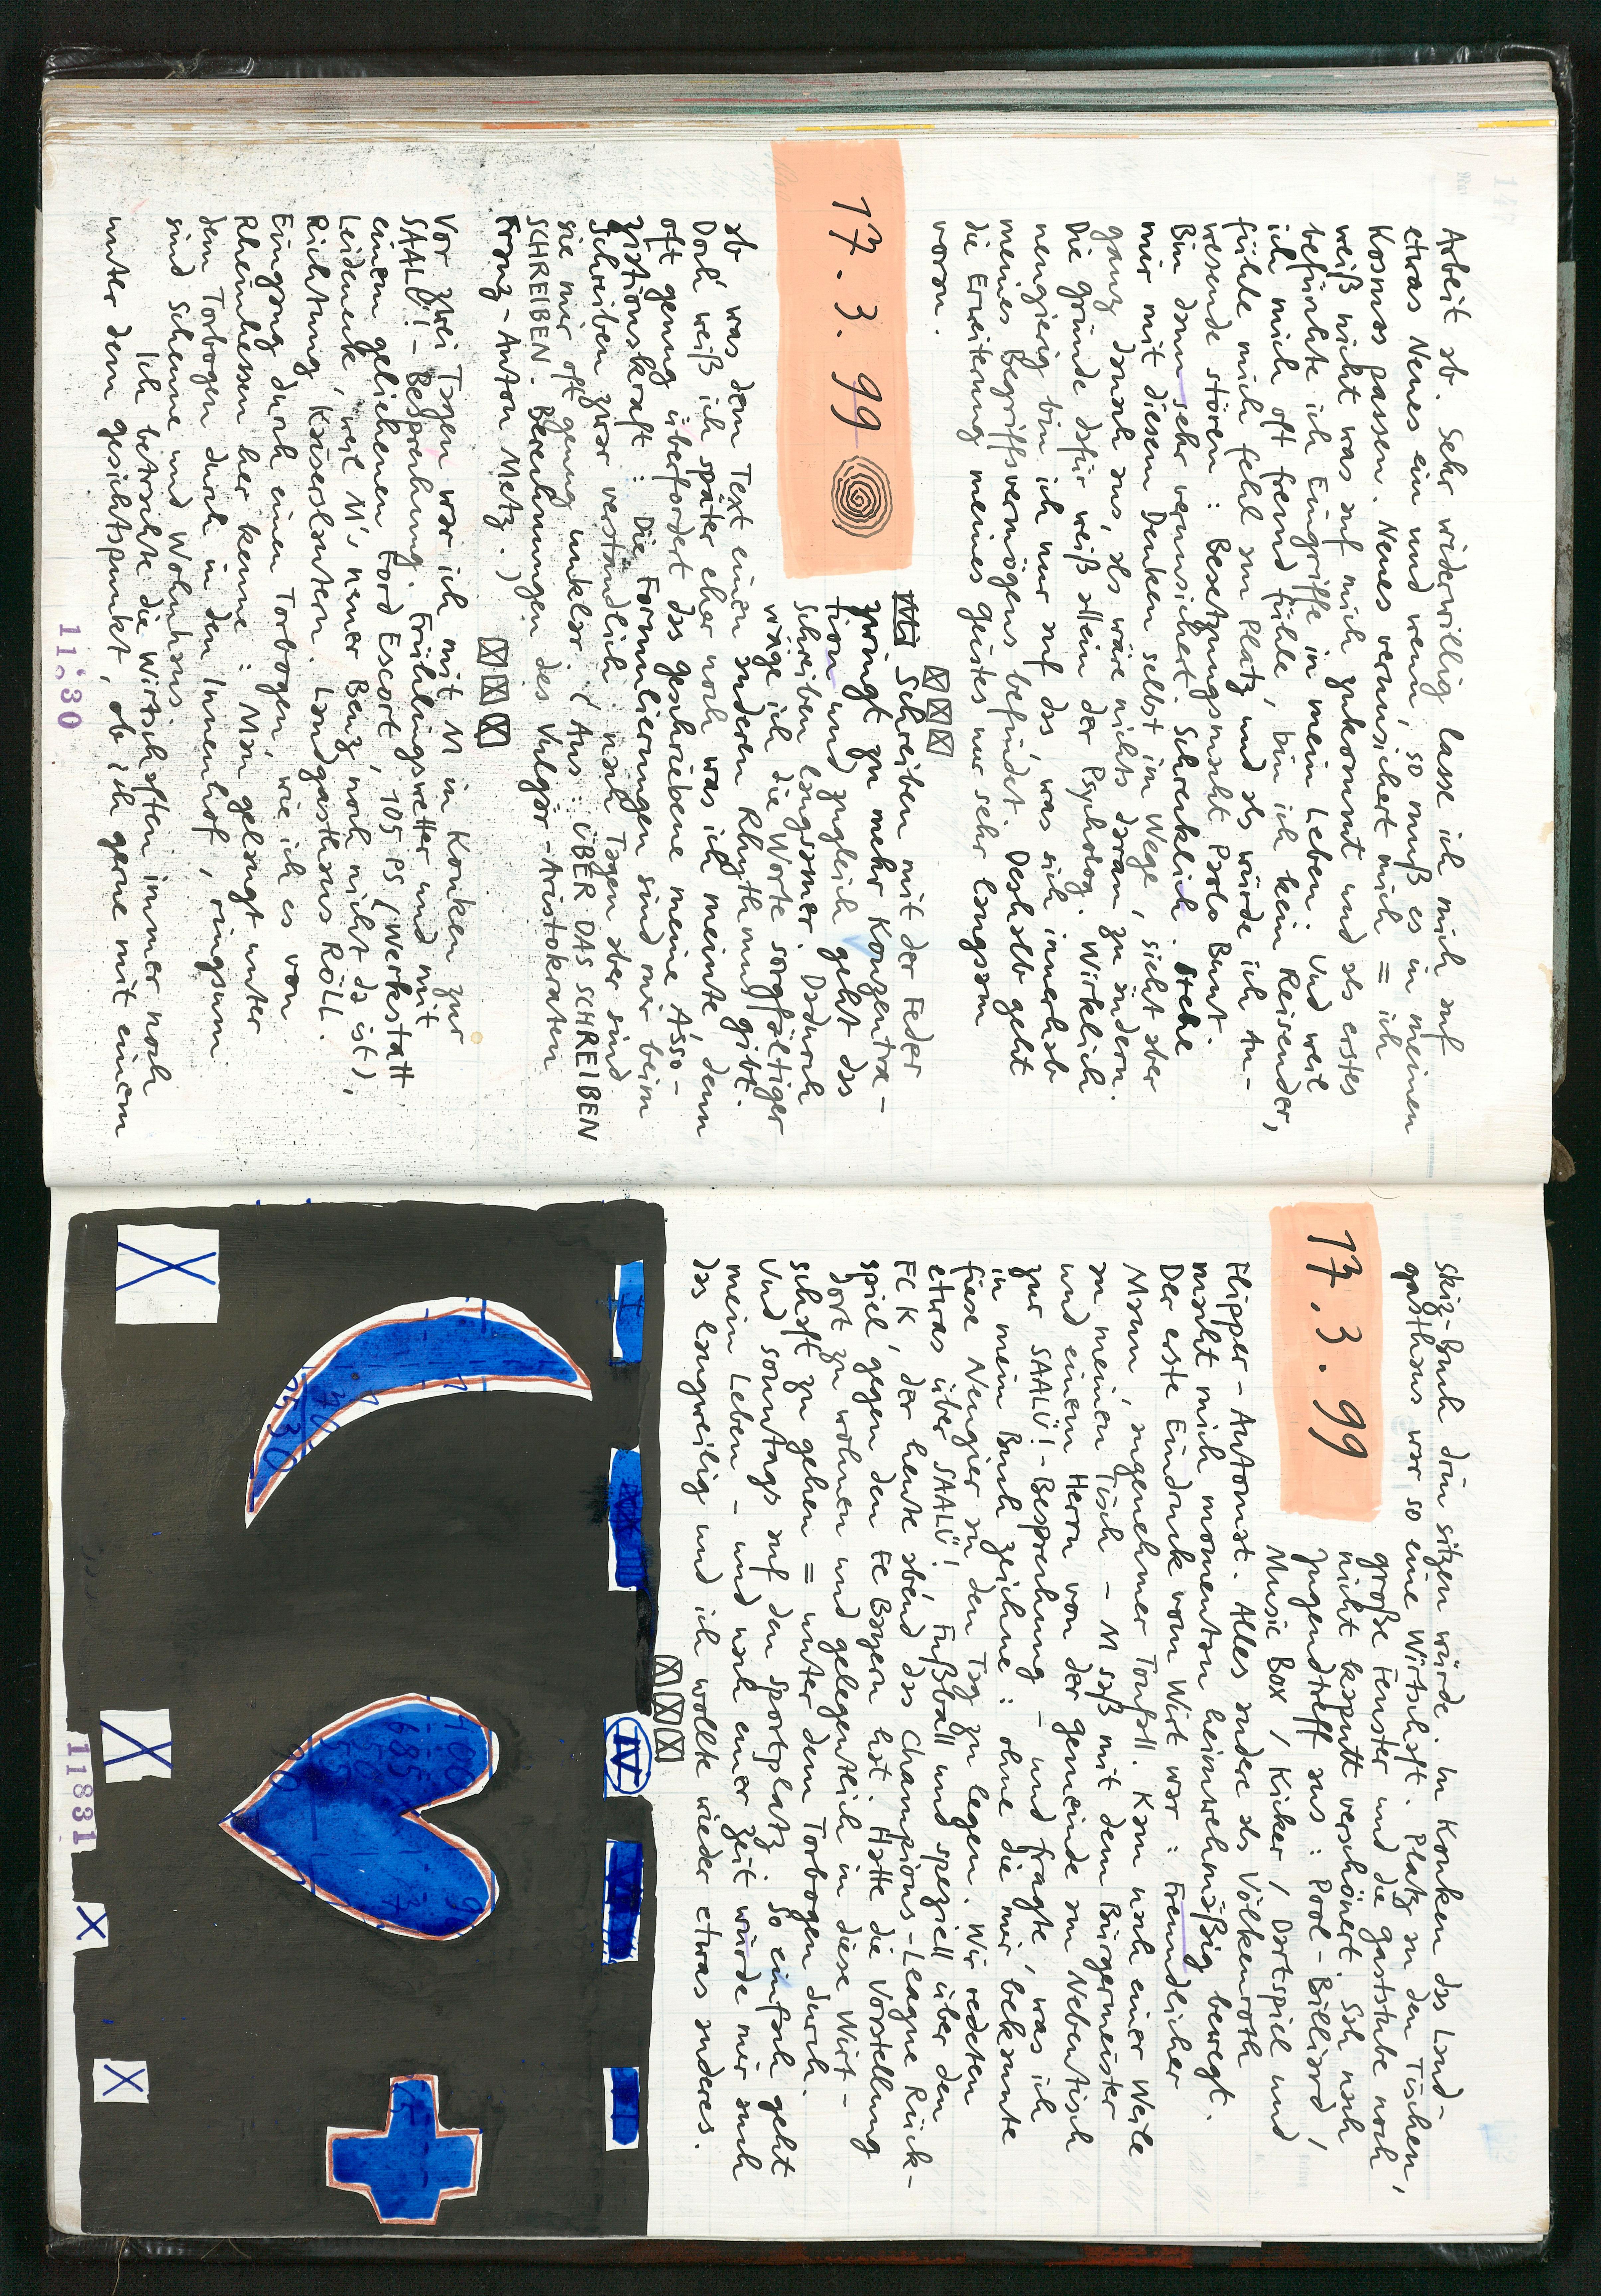 Arbeit ab. Sehr widerwillig lasse ich mich auf
etwas Neues ein und wenn, so muß es in meinen
Kosmos passen. Neues verunsichert mich = ich
weiß nicht was auf mich zukommt und als erstes
befürchte ich Eingriffe in mein Leben. Und weil
ich mich oft fremd fühle, bin ich kein Reisender,
fühle mich fehl am Platz und als würde ich An-
wesende stören: Besetzungsmacht Paolo Bunt.
Bin dann sehr verunsichert. Schrecklich. Stehe
mir mit diesem Denken selbst im Wege, sieht aber
ganz danach aus, als wäre nichts daran zu ändern.
Die Gründe dafür weiß allein der Psycholog. Wirklich
neugierig bin ich nur auf das, was sich innerhalb
meines Begriffsvermögens befindet. Deshalb geht
die Erweiterung meines Geistes nur sehr langsam
voran.
17.3.99
Schreiben mit der Feder
zwingt zu mehr Konzentra-
tion und zugleich geht das
Schreiben langsamer. Dadurch
wäge ich die Worte sorgfältiger
ab, was dem Text einen anderen Rhythmus gibt.
Doch weiß ich später eher noch was ich meinte, denn
oft genug überfordert das Geschriebene meine Asso-
ziationskraft: Die Formulierungen sind mir beim
Schreiben zwar verständlich, nach Tagen aber sind
sie mir oft genug unklar. (Aus: ÜBER DAS SCHREIBEN
SCHREIBEN. Berechnungen des Vulgär-Aristokraten
Franz-Anton Metz.)
Vor zwei Tagen war ich mit M in Konken zur
SAALÜ!-Besprechung. Frühlingswetter und mit
einem geliehenen Ford Escort, 105 PS (Werkstatt
Leideneck, weil M's neuer Benz noch nicht da ist),
Richtung Kaiserslautern. Landgasthaus Röll.
Eingang durch einen Torbogen, wie ich es von
Rheinhessen her kenne: Man gelangt unter
dem Torbogen durch in den Innenhof, ringsum
sind Scheune und Wohnhaus.
Ich betrachte die Wirtschaften immer noch
unter dem Gesichtspunkt, ob ich gerne mit einem
11830
skiz-Buch drin sitzen würde. In Konken das Land-
gasthaus war so eine Wirtschaft. Platz an den Tischen,
große Fenster und die Gaststube noch
nicht kaputt verschönert. Sah nach
Jugendtreff aus: Pool-Billiard,
Music Box / Kicker / Dartspiel und
17.3.99
Flipper-Automat. Alles andere als Völkenroth
macht mich momentan heimwehmäßig bewegt.
Der erste Eindruck vom Wirt war: Freundlicher
Mann, angenehmer Tonfall. Kam nach einer Weile
an meinen Tisch - M saß mit dem Bürgermeister
und einem Herrn von der Gemeinde am Nebentisch
zur SAALÜ!-Besprechung - und fragte, was ich
in mein Buch zeichne: ohne die mir bekannte
fiese Neugier an den Tag zu legen. Wir redeten
etwas über SAALÜ! Fußball und speziell über den
FCK, der heute abend das Champions-League Rück-
spiel gegen den FC Bayern hat. Hatte die Vorstellung
dort zu wohnen und gelegentlich in diese Wirt-
schaft zu gehen = unter dem Torbogen durch.
Und sonntags auf den Sportplatz. So einfach geht
mein Leben - und nach einer Zeit würde mir auch
das langweilig und ich wollte wieder etwas anderes.
IV
11831